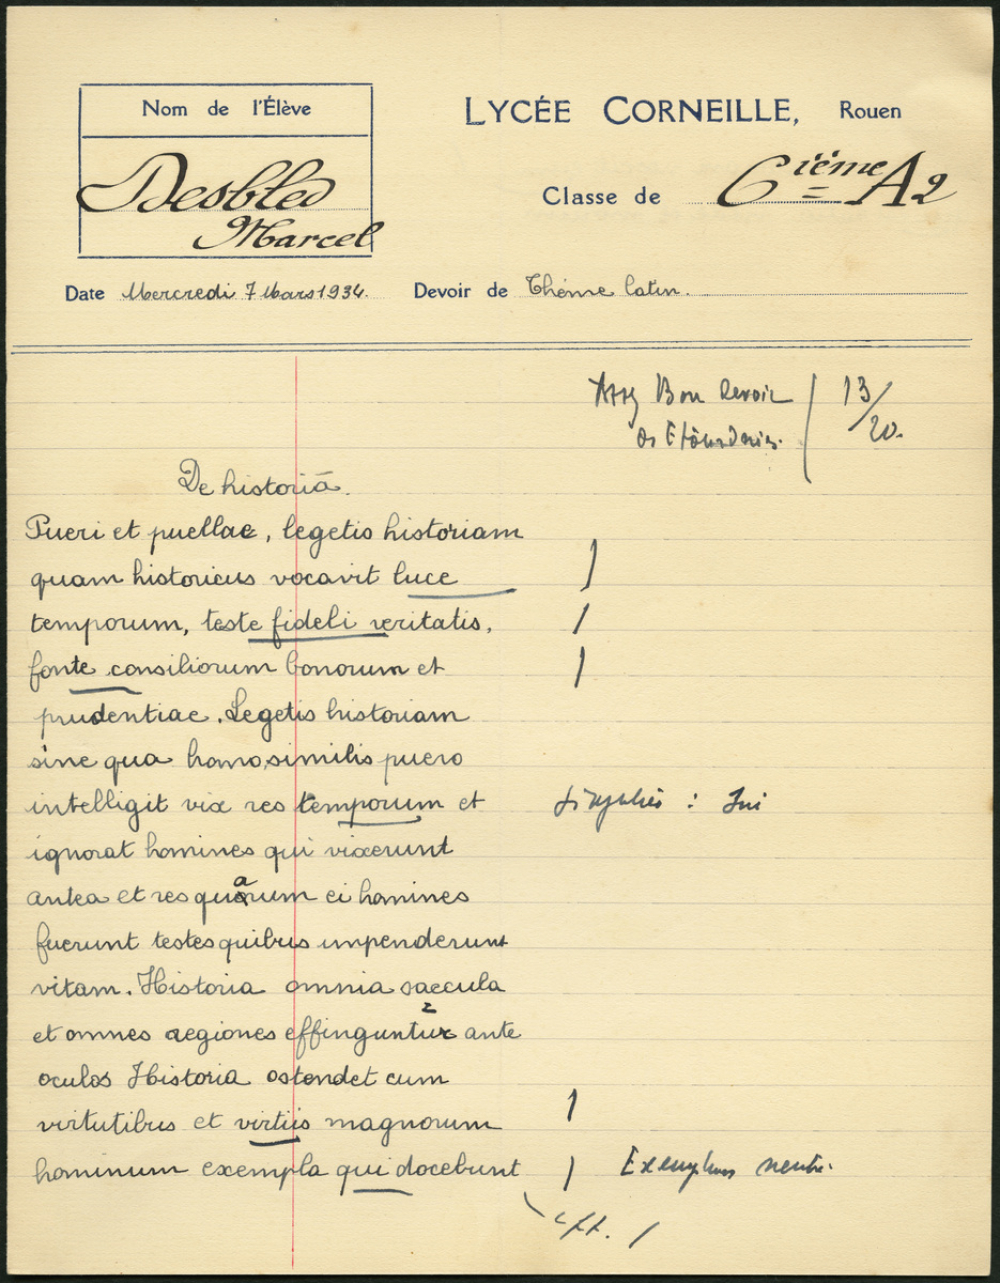 Nom de l'Élève
LYCÉE CORNEILLE, Rouen
Desbled
Marcel
Classe de 6ième A2
Date Mercredi 7 Mars 1934. Devoir de Thème latin.
Assez Bon devoir 13/20.
Des Etourderies.
De historiā.
Pueri et puellae, legetis historiam
quam historicus vocavit luce
temporum, teste fideli veritatis,
fonte consiliorum bonorum et
prudentiae. Legetis historiam
sine qua homo similis puero
intelligit vix res temporum et
: sui
ignorat homines qui vixerunt
antea et res quarum ei homines
fuerunt testes quibus impenderunt
vitam. Historia omnia saecula
et omnes regiones effinguntur ante
oculos Historia ostendet cum
virtutibus et virtiis magnorum
hominum exempla qui docebunt
Exemplum neutre.